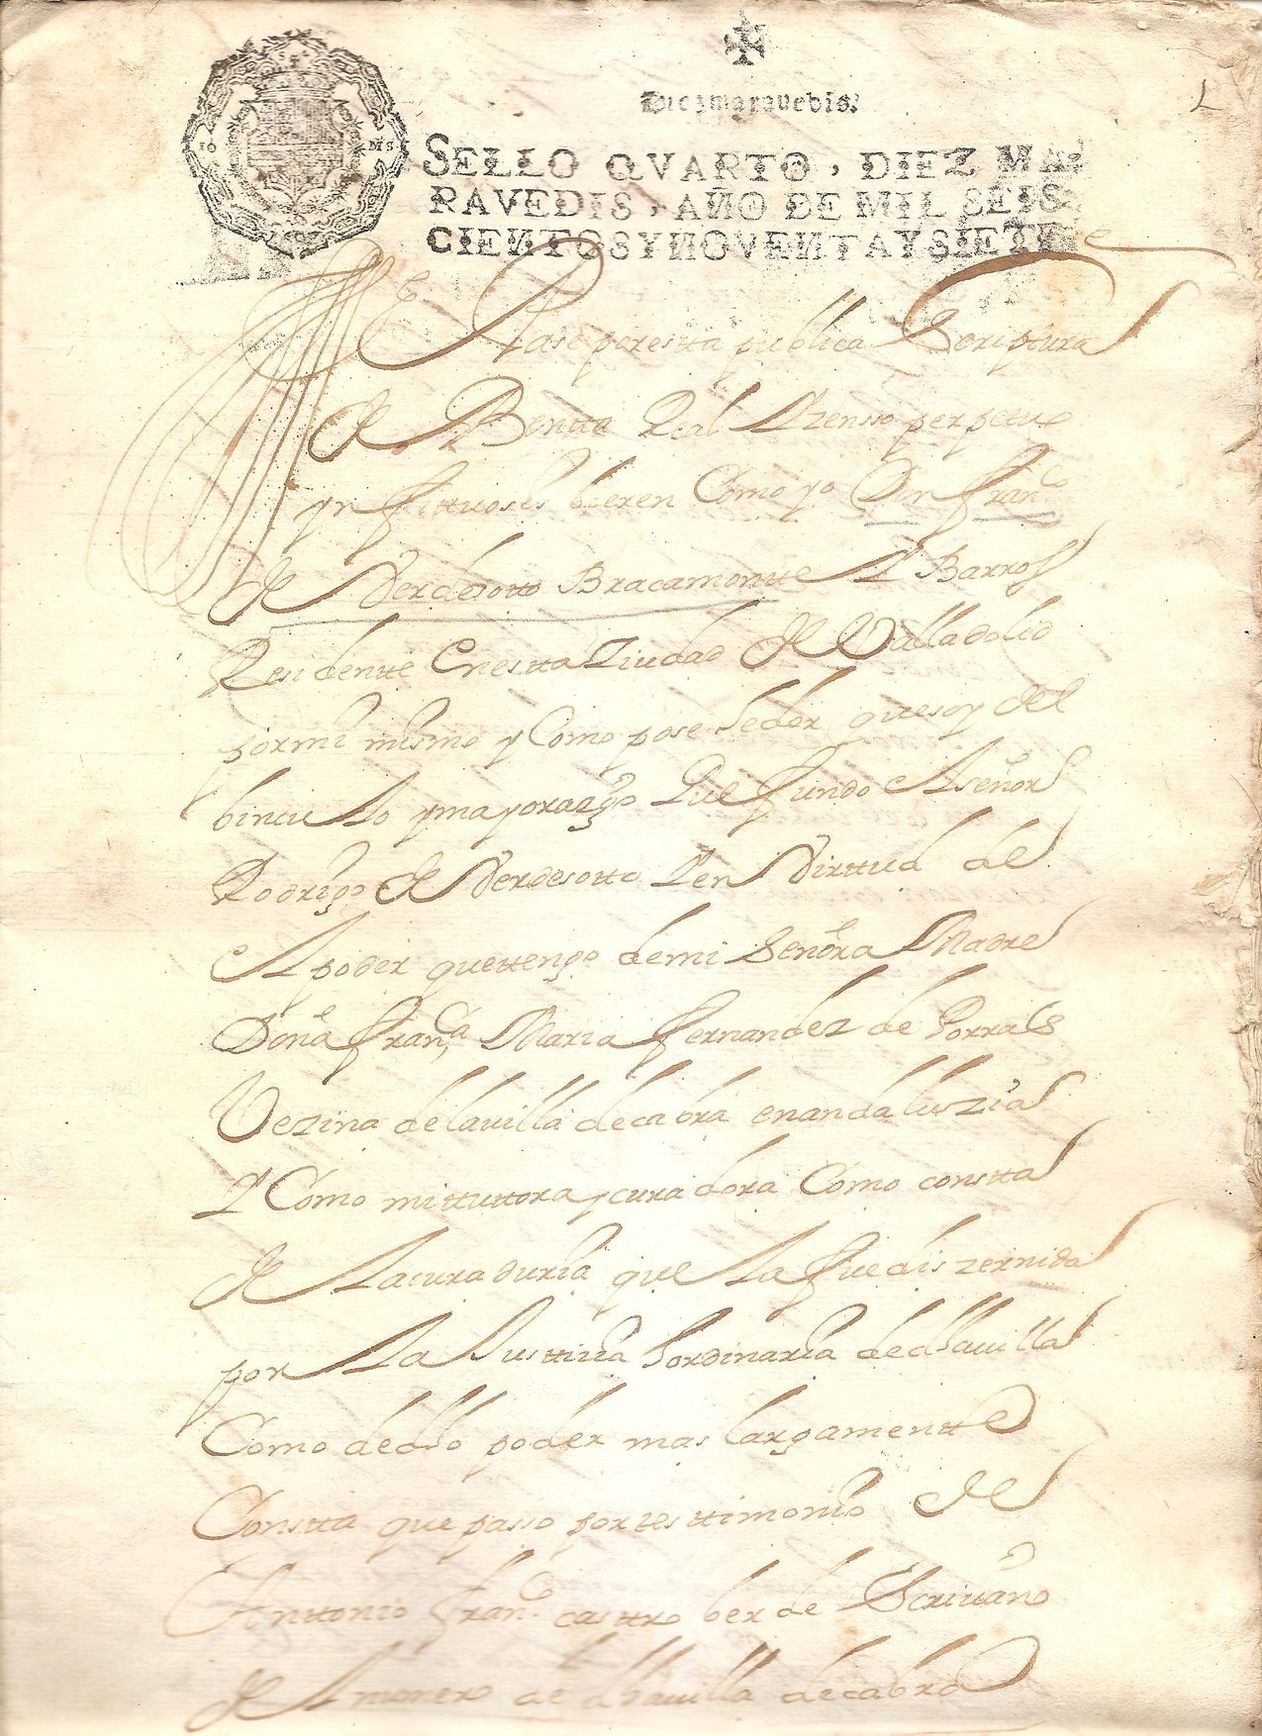 Diez marauedis.
SELLO QVARTO, DIEZ MA-
RAVEDIS, AÑO DE MIL SEIS
CIENTOS Y NOVENTA Y SIETE
Sease por estta publica Scriptura
de Bentta Real Y Zensso perpetuo
ynfittuosis bieren Como yo Don Franco
de Verdesotto Bracamontte Y Barros
Residentte Enestta Ziudad de Valladolid
por mi mismo y Como posehedor que soy del
binculo y mayorazgo Que fundo el señor
Rodrigo de Verdesotto Y en Virttud del
el poder que ttengo de mi Señora Madre
Doña Franca Maria Fernandez de Porras
Vezina de la uilla de cabra en andaluzia
Y Como mi ttuttora y curadora Como constta
de la curaduria que la fue diszernida
por la Justtizia hordinaria de dha uilla
Como de dho poder mas largamentte
Constta que passo por testtimonio de
Anttonio Franco casttro berde Scriuano
de numero de dha uilla de cabra